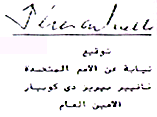 توقيع
نيابة عن الامم المتحدة
خافيير بيريز دى كوييار
الامين العام